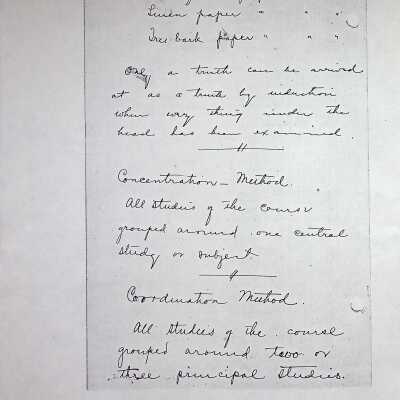 Linen paper " " "
Tree bark paper " " "
Only a truth can be arrived
at as a truth by induction
when every thing under the
head has been examined.
Concentration – Method.
All studies of the course
grouped around one central
study or subject
Coordination Method.
All studies of the course
grouped around two or
three principal studies.